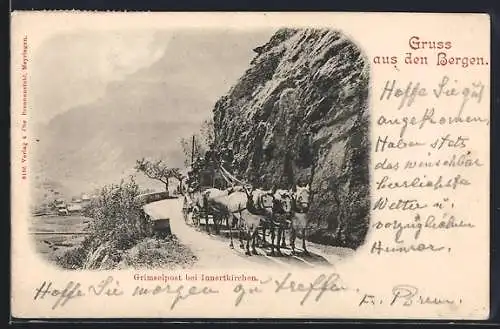 Gruss
aus den Bergen.
Hoffe Sie gut
angekommen.
Haben stets
das wünschbar
herrlichste
Wetter u.
vorzüglichen
Humor.
Grimselpost bei Innertkirchen.
Hoffe Sie morgen Abend zu treffen.
8186 Verlag v. Chr. Brennenstuhl, Meyringen.